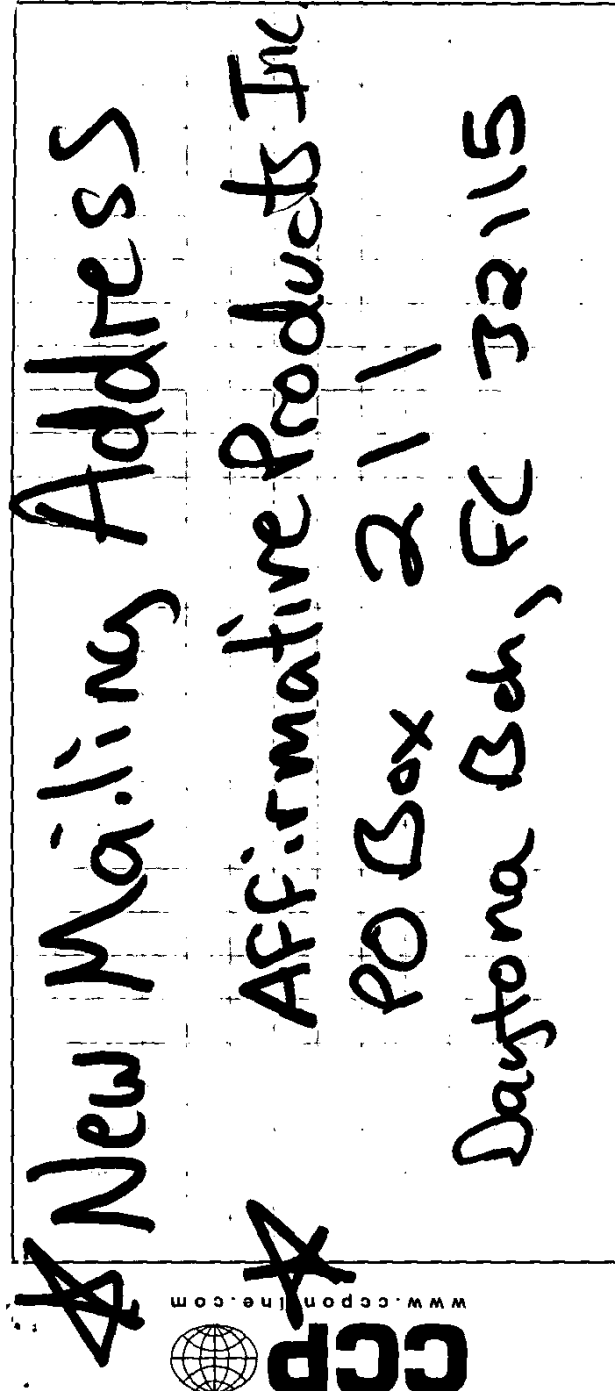 New Mailing Address
Affirmative Products Inc
PO Box 211
Daytona Bch, FL 32115
CCP
www.ccponline.com